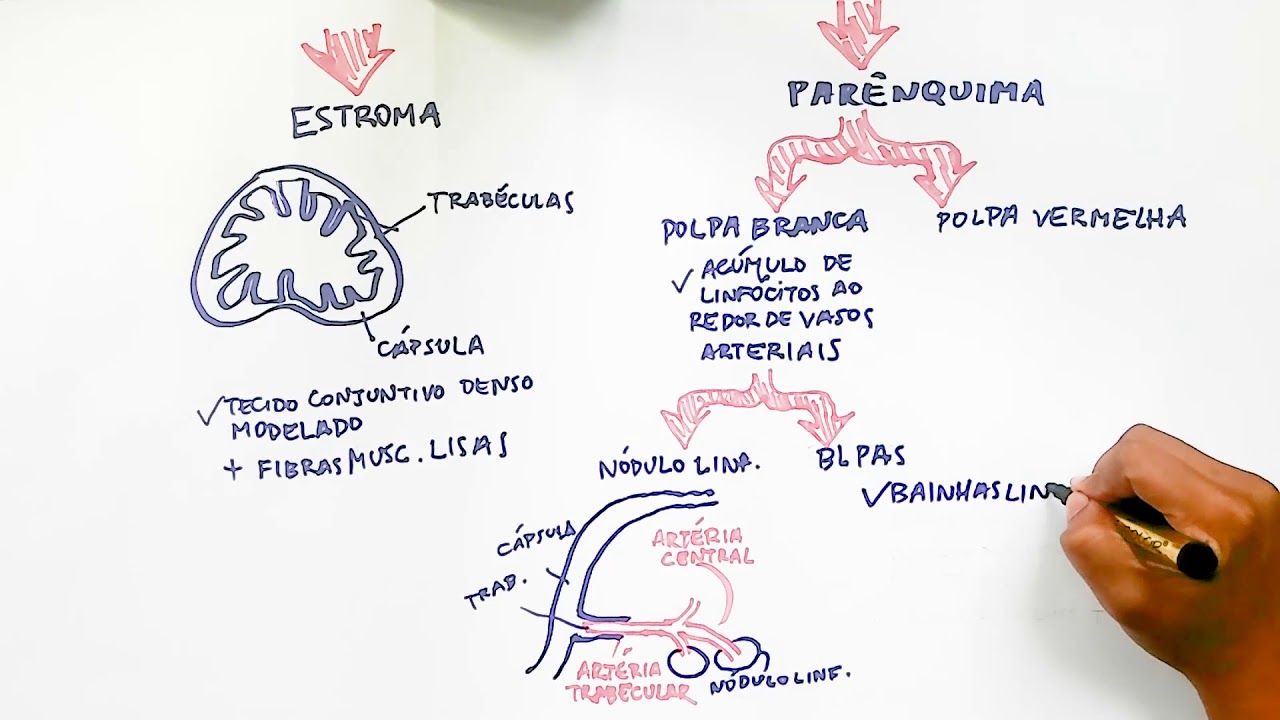 ESTROMA
TRABÉCULAS
CÁPSULA
✓TECIDO CONJUNTIVO DENSO
MODELADO
+ FIBRAS MUSC. LISAS
PARÊNQUIMA
POLPA BRANCA
✓ ACÚMULO DE
LINFÓCITOS AO
REDOR DE VASOS
ARTERIAIS
POLPA VERMELHA
NÓDULO LINF.
CÁPSULA
TRAB.
ARTÉRIA
CENTRAL
ARTÉRIA
TRABECULAR
NÓDULO LINF.
BLPAS
✓BAINHAS LIN